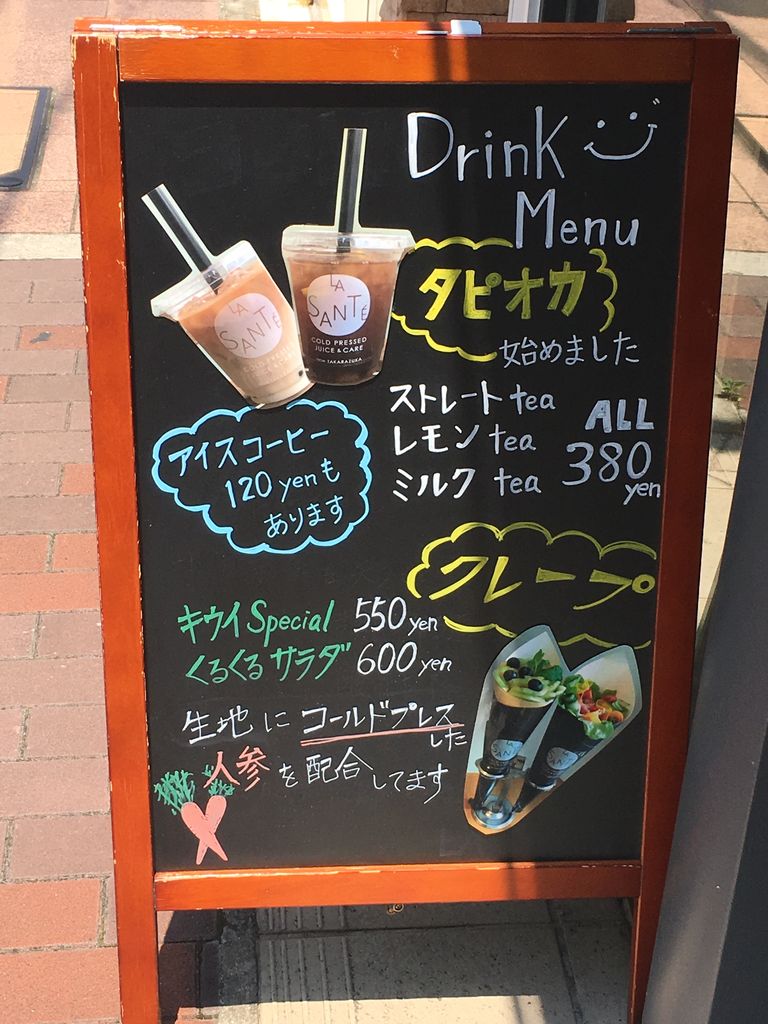 Drink
Menu
タピオカ
始めました
LA
SANTÉ
LA
SANTÉ
COLD PRESSED
JUICE & CARE
from TAKARAZUKA
ストレート tea
レモン tea
ミルク tea
ALL
380
yen
アイスコーヒー
120 yen も
あります
クレープ
キウイ Special 550 yen
くるくるサラダ 600 yen
生地に コールドプレス
した
人参を配合してます
LA
SANTÉ